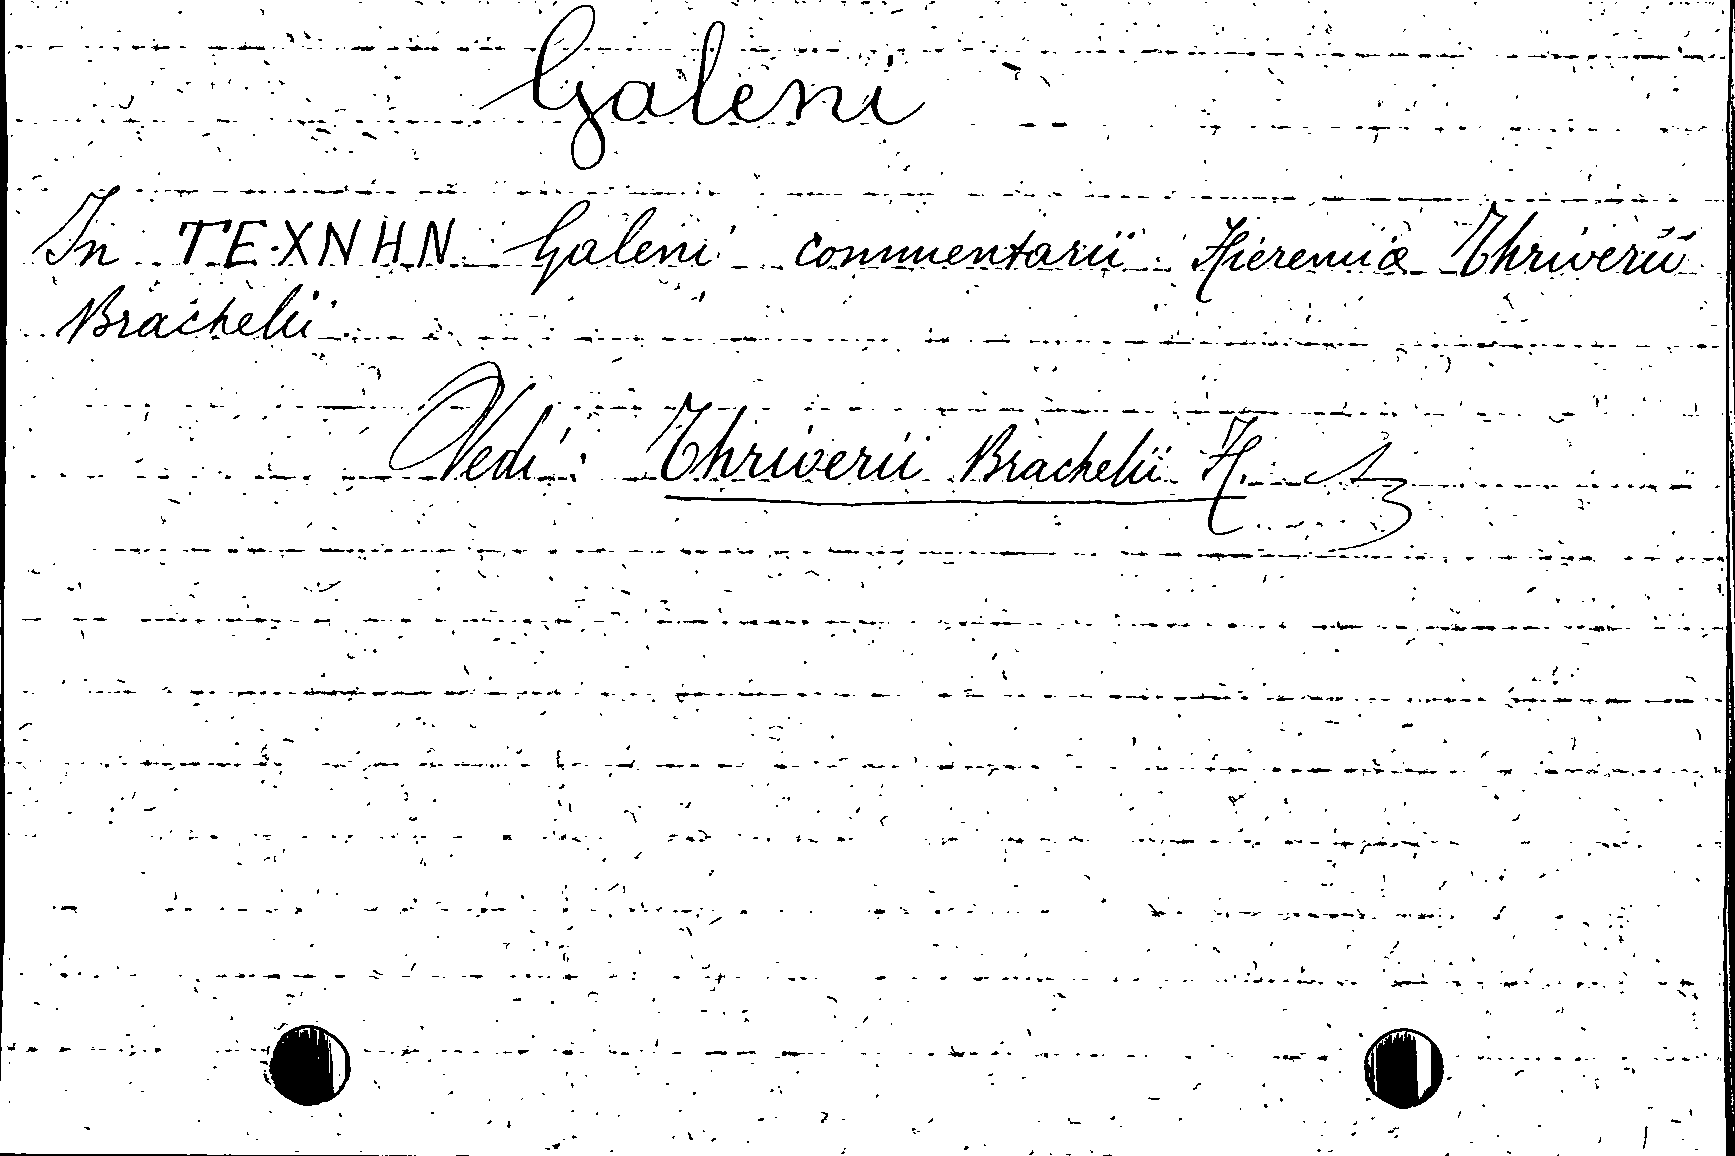 Galeni
In ΤΕΧΝΗΝ Galeni commentarii Hieremiæ Thriverii
Brachelii
Vedi: Thriverii Brachelii H.